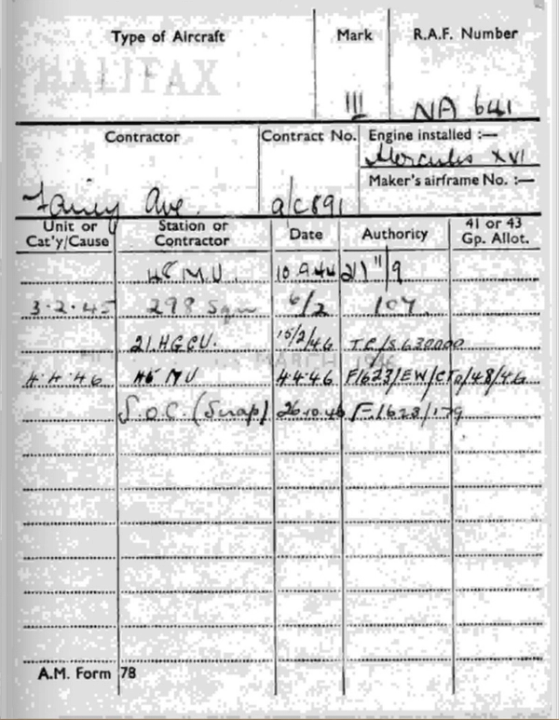 Type of Aircraft Mark R.A.F. Number
HALIFAX
III NA 641
Contractor Contract No. Engine installed :—
Hercules XVI
Maker's airframe No. :—
Fairey Ave. a/c891
Unit or Cat'y/Cause Station or Contractor Date Authority 41 or 43 Gp. Allot.
48 M.U. 10.9.44 11/9
3.2.45 298 Sqn 6/2 107
21.HGCU. 15/2/46
4.4.46 45 MU 4.4.46 F/623/EW/CTO/48/46
S.O.C. (Scrap) 26.10.46 F/623/179
A.M. Form 78